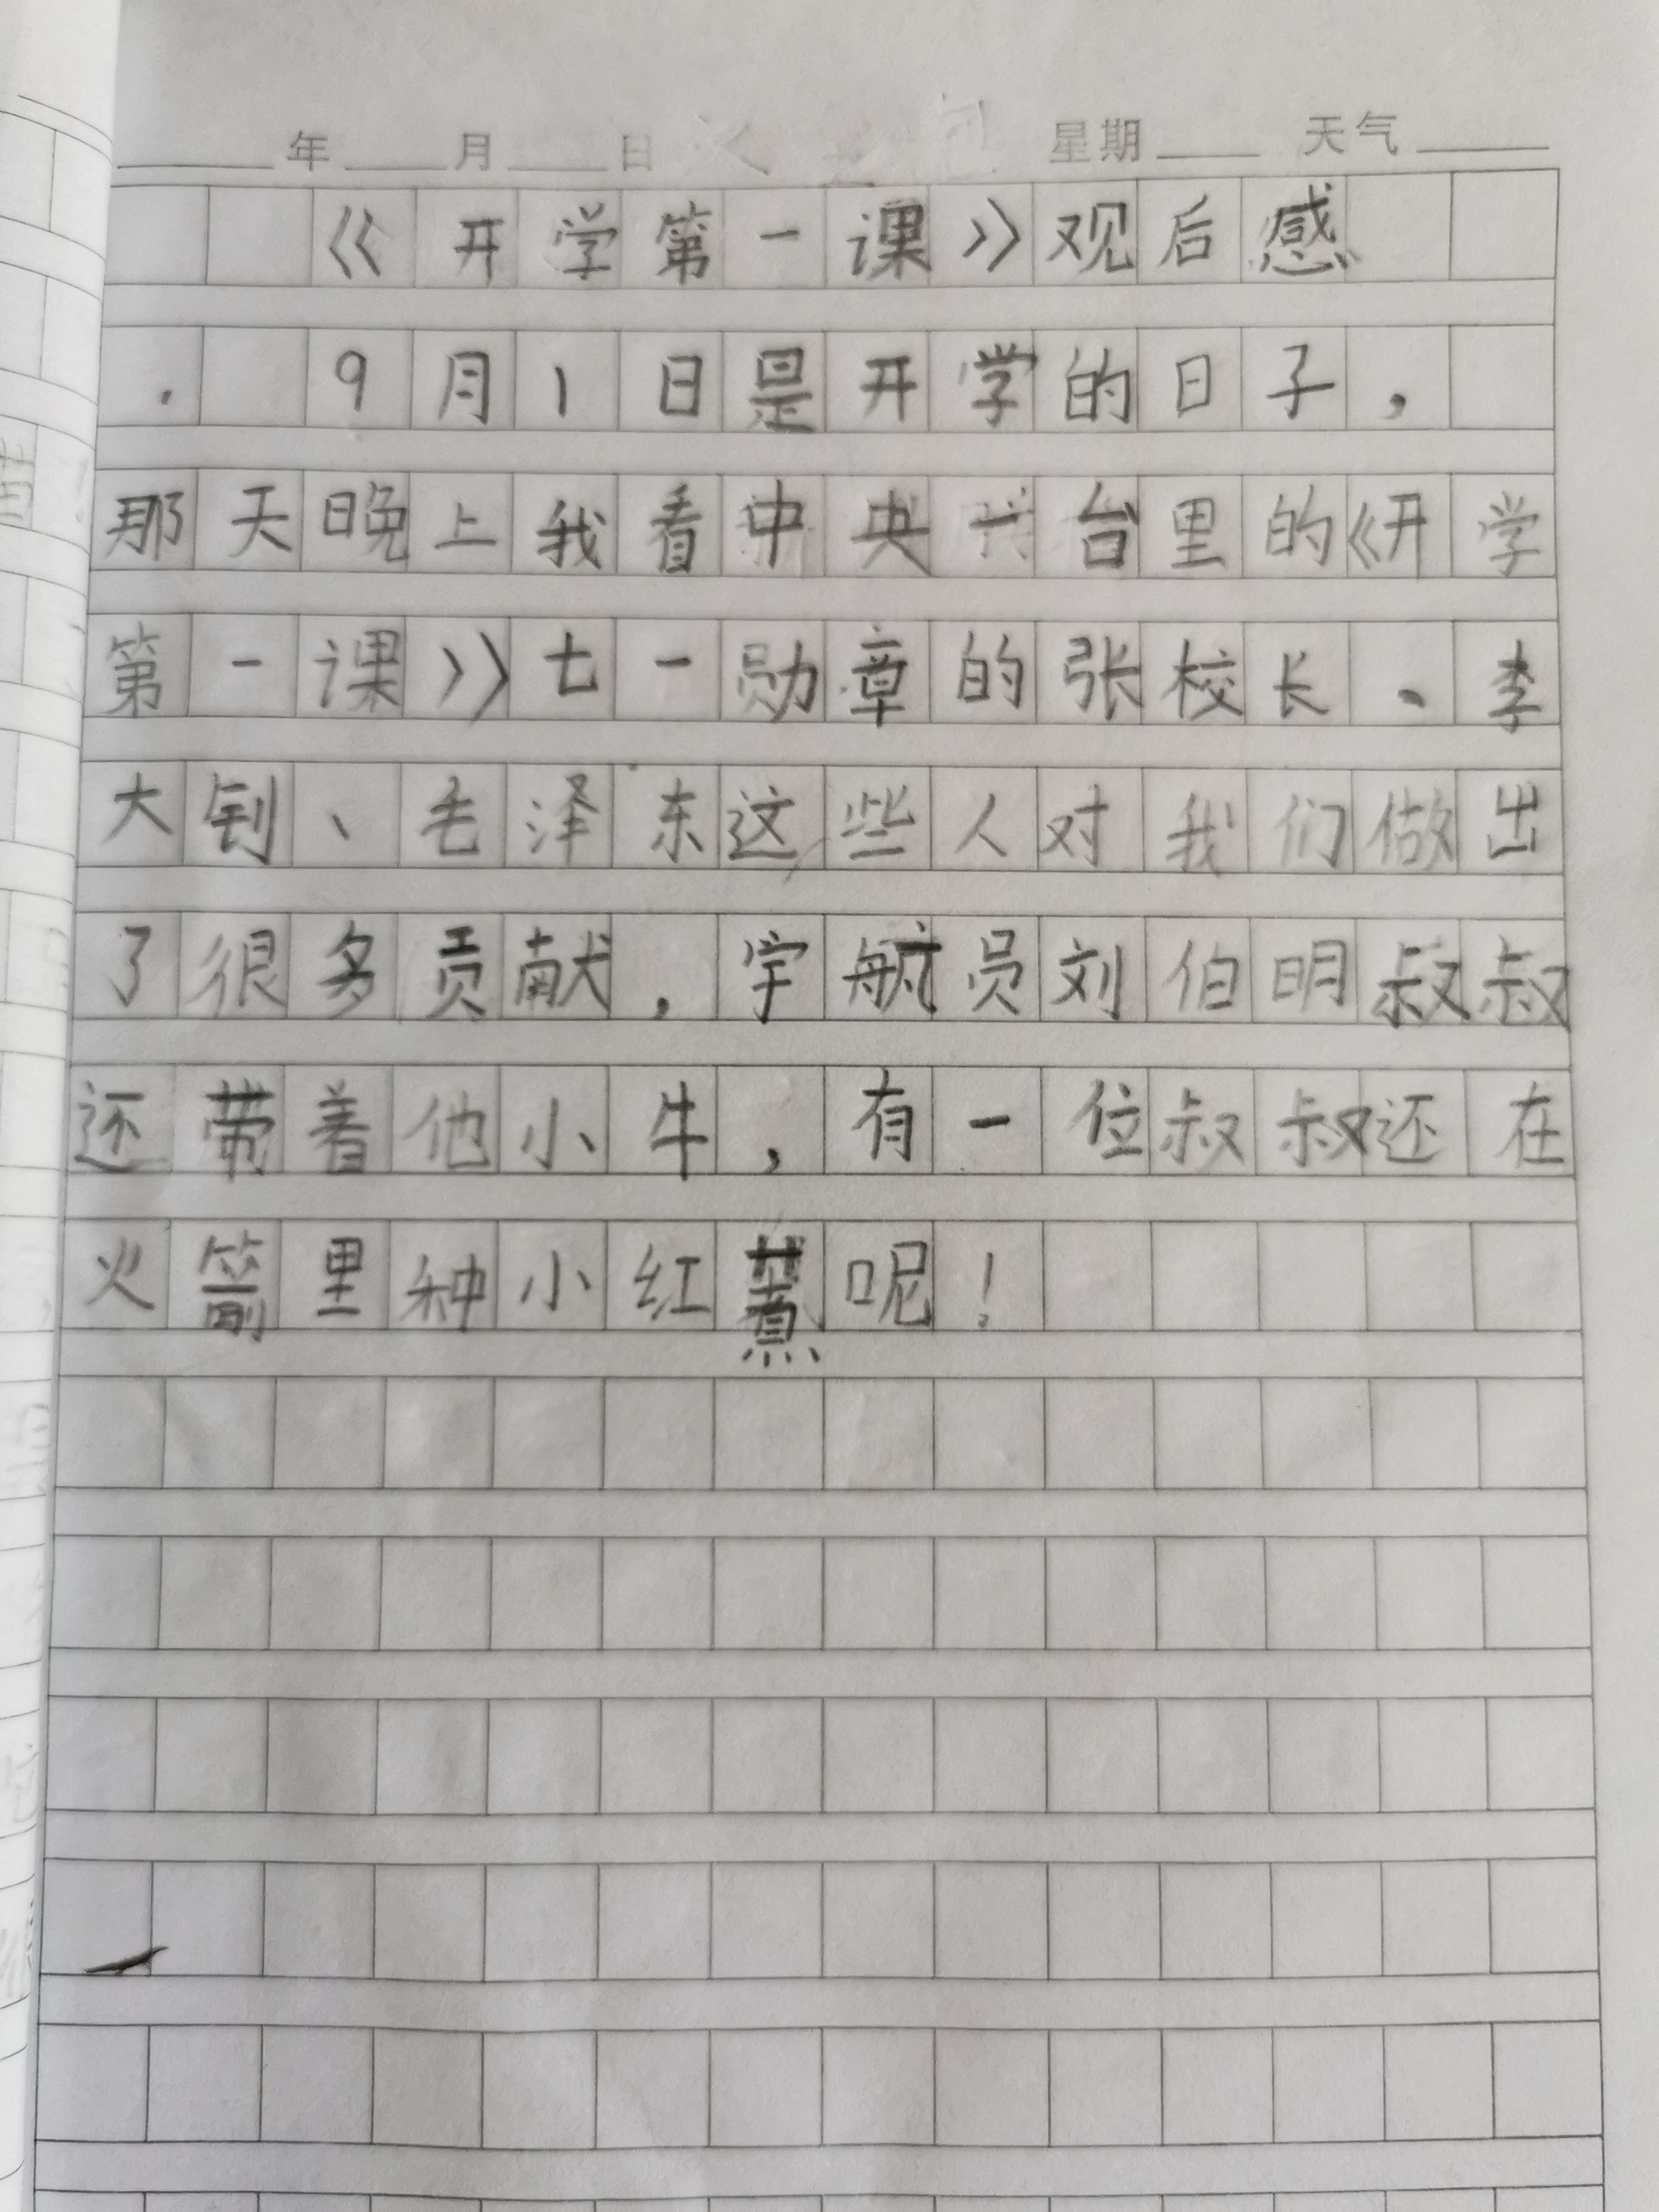 年 月 日 星期 天气
《开学第一课》观后感
9月1日是开学的日子，
那天晚上我看中央一台里的《开学
第一课》七一勋章的张校长、李
大钊、毛泽东这些人对我们做出
了很多贡献，宇航员刘伯明叔叔
还带着他小牛，有一位叔叔还在
火箭里种小红薯呢！